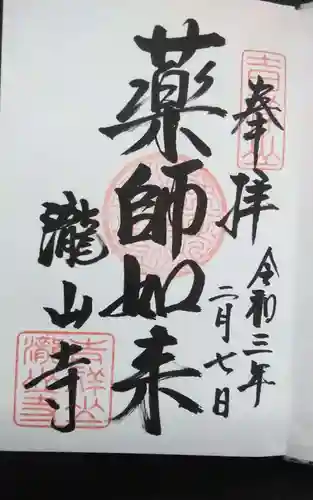 奉拝
令和三年
二月七日
薬師如来
瀧山寺
吉祥山
吉祥山
瀧山寺